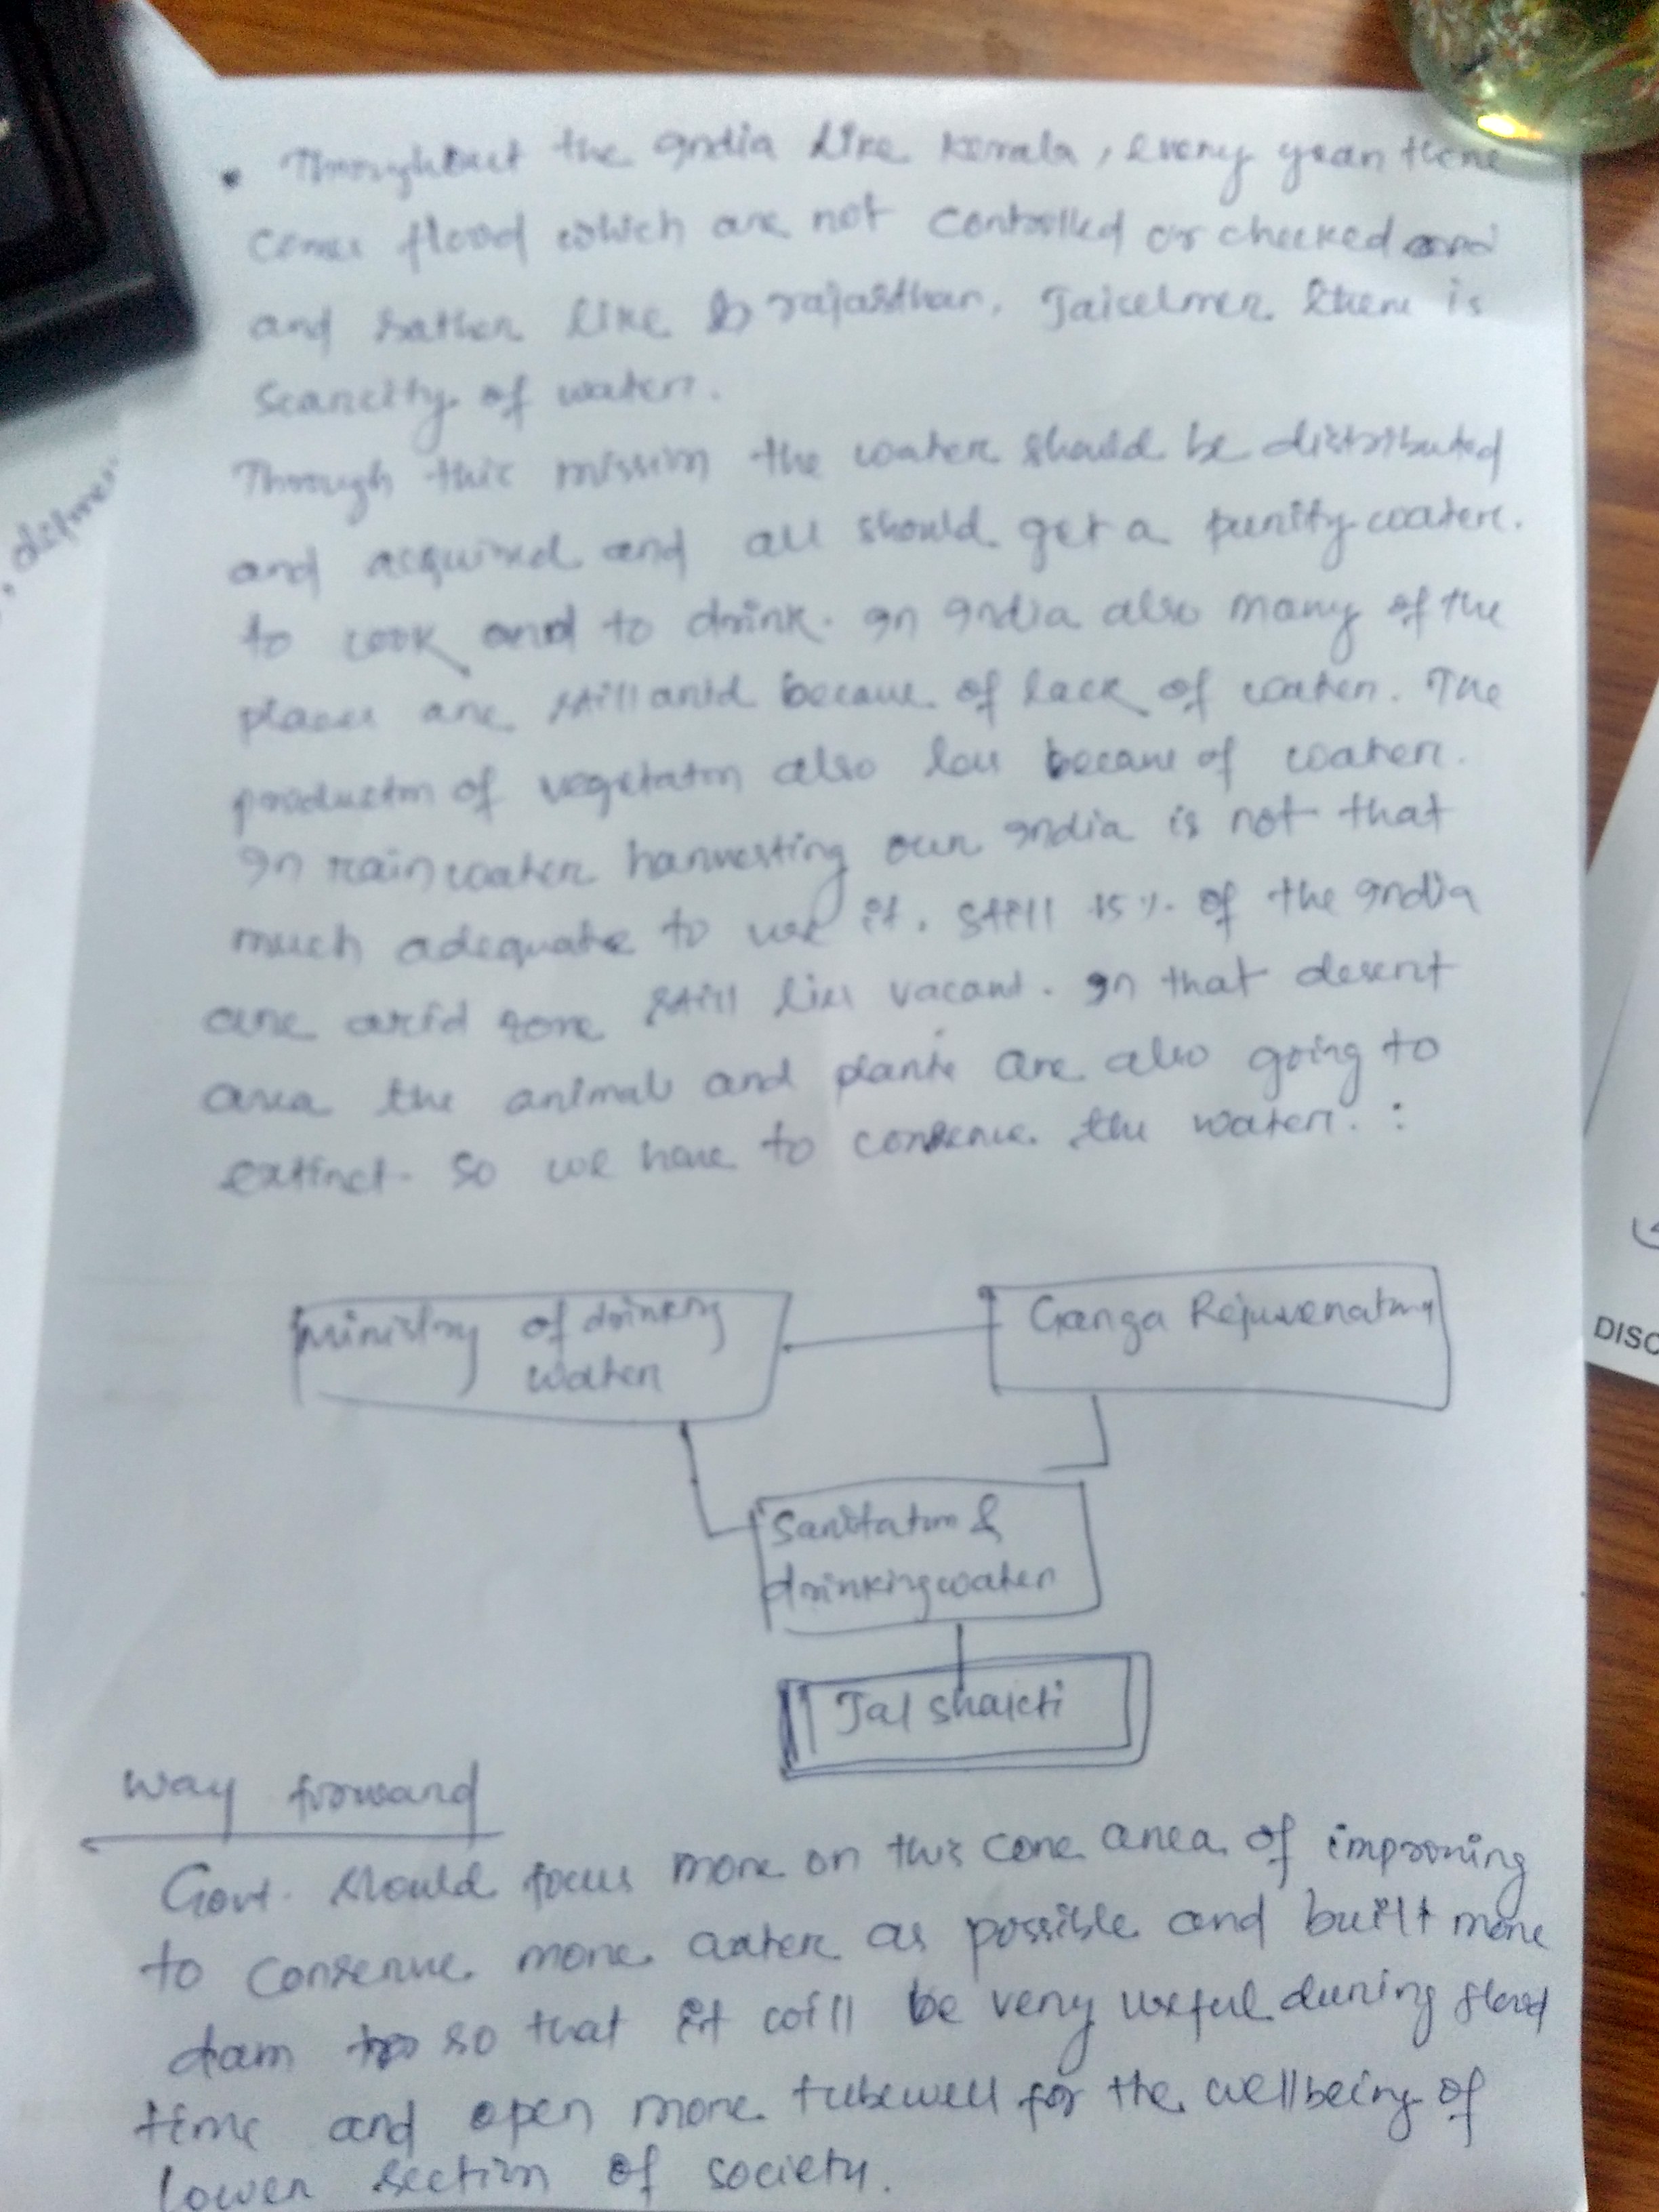 • Throughout the India like Kerala, every year there
comes flood which are not controlled or checked and
and rather like rajasthan, Jaiselmer there is
Scarcity of water.
Through this mission the water should be distributed
and acquired and all should get a purity water.
to cook and to drink. In India also many of the
places are still arid because of lack of water. The
production of vegetation also less because of water.
In rain water harvesting our India is not that
much adequate to use it. Still 15% of the India
are arid zone still lies vacant. In that desert
area the animals and plants are also going to
extinct. So we have to conserve the water. :
Ministry of drinking
water
Ganga Rejuvenating
Sanitation &
drinking water
Jal Shakti
Way forward
Govt. should focus more on this core area of improving
to conserve more water as possible and built more
dam so that it will be very useful during flood
time and open more tubewell for the wellbeing of
lower section of society.
DISC